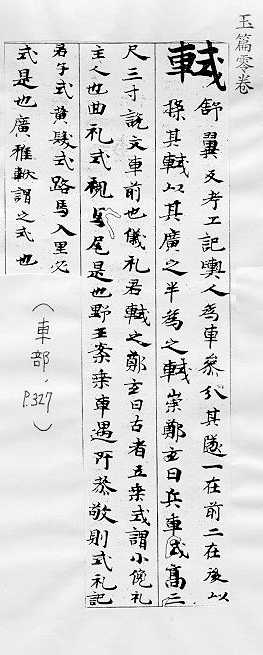 玉篇零卷
軾
舒翼反考工記輿人爲車參分其隧一在前二在後以
揉其軾以其廣之半爲之軾崇鄭玄曰兵車式高三
尺三寸說文車前也儀礼君軾之鄭玄曰古者立乗式謂小俛礼
主人也曲礼式視馬尾是也野王案乗車遇所恭敬則式礼記
弟子式黄髮式路馬入里必
式是也廣雅軾謂之式也
(車部, P.327)